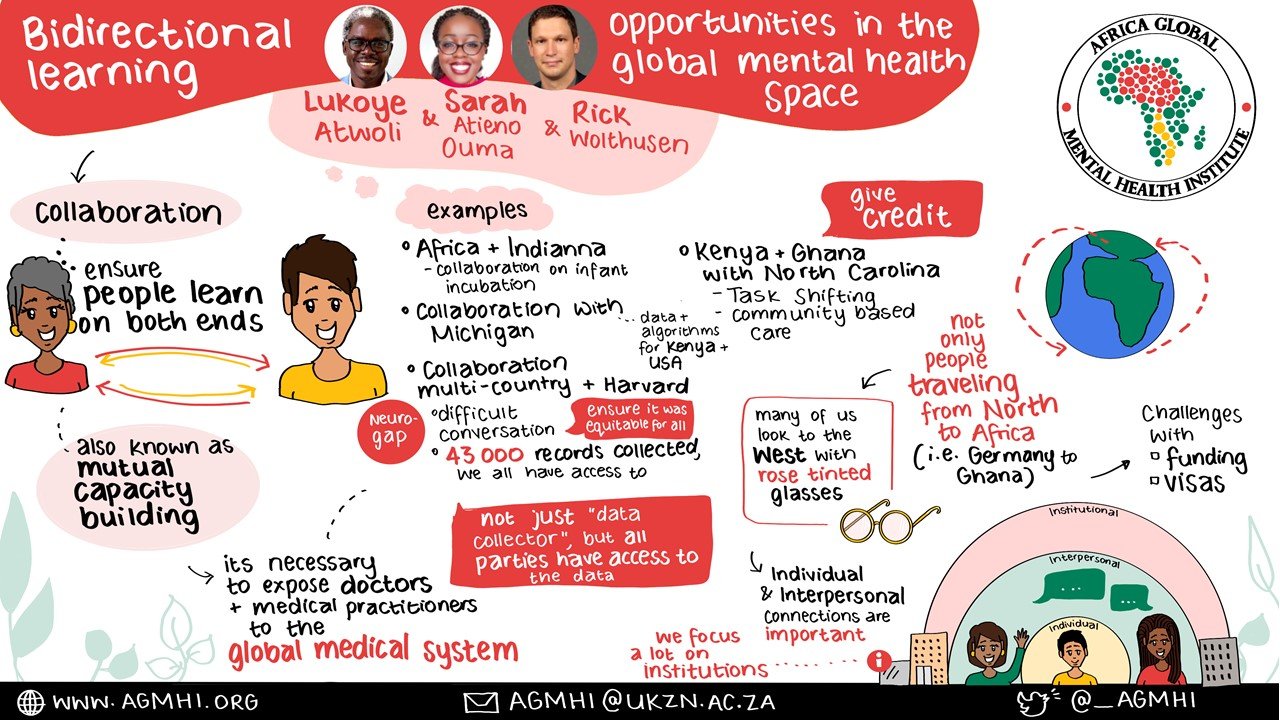 Bidirectional
learning
opportunities in the
global mental health
space
Lukoye
Atwoli
&
Sarah
Atieno
Ouma
&
Rick
Wolthusen
AFRICA GLOBAL
MENTAL HEALTH INSTITUTE
Collaboration
ensure
people learn
on both ends
also known as
mutual
capacity
building
its necessary
to expose doctors
+ medical practitioners
to the
global medical system
examples
Africa + Indianna
- collaboration on infant
incubation
Collaboration with
Michigan
... data +
algorithms
for Kenya +
USA
Collaboration
multi-country + Harvard
Neuro-
gap
difficult
conversation
ensure it was
equitable for all
43 000 records collected,
we all have access to
not just "data
collector", but all
parties have access to
the data
give
credit
Kenya + Ghana
with North Carolina
- Task Shifting
- community based
care
not
only
people
traveling
from North
to Africa
(i.e. Germany to
Ghana)
Challenges
with
funding
visas
many of us
look to the
West with
rose tinted
glasses
Individual
& Interpersonal
connections are
important
we focus
a lot on
institutions
i
Institutional
Interpersonal
Individual
WWW.AGMHI.ORG
AGMHI@UKZN.AC.ZA
@_AGMHI